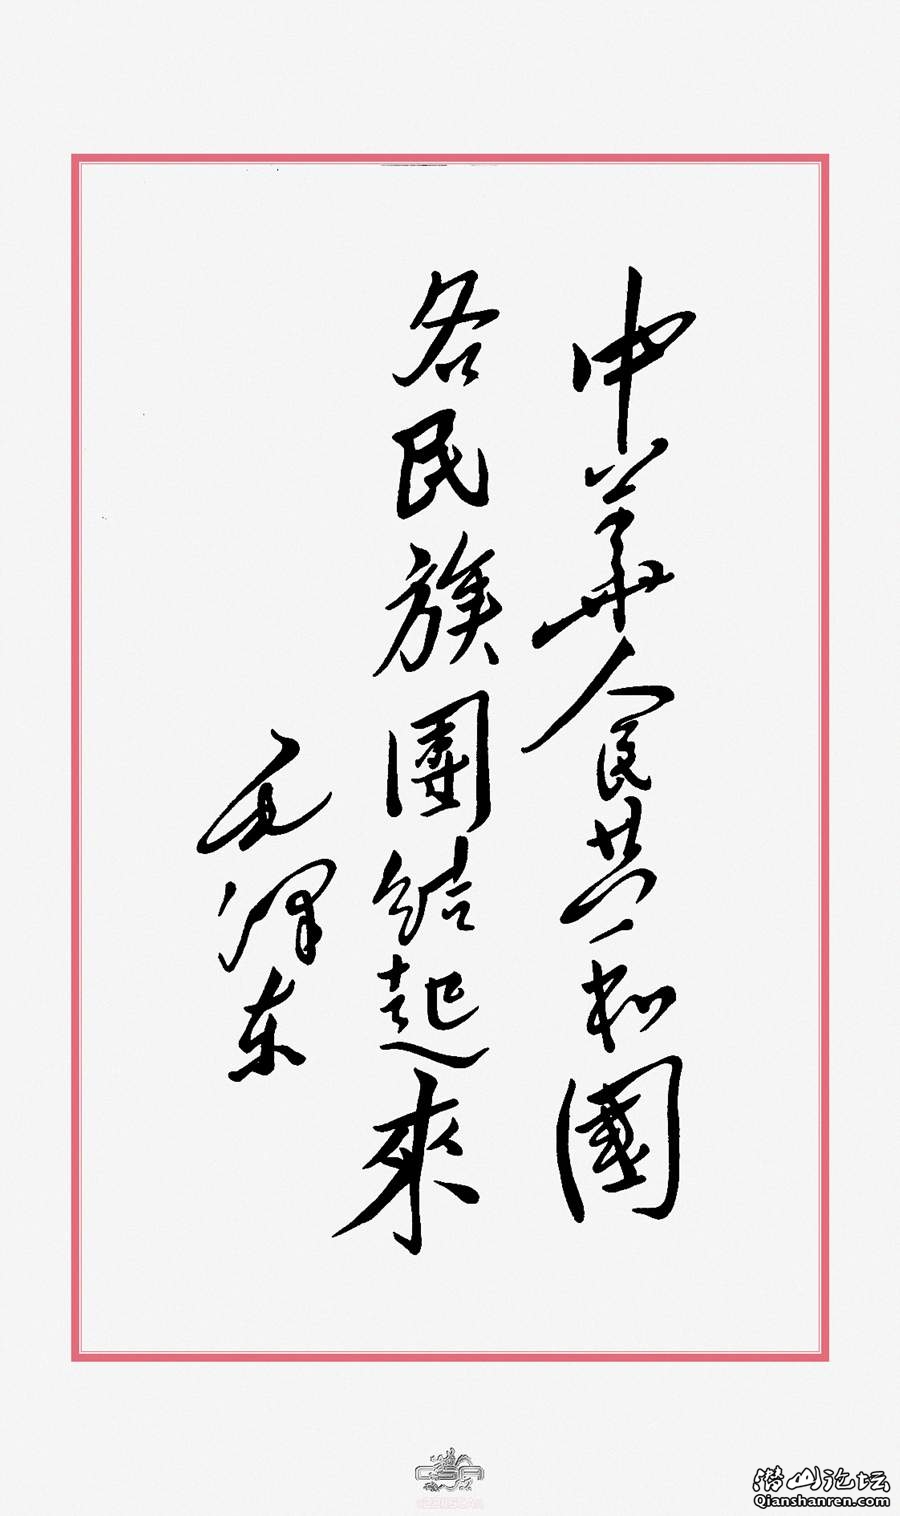 中華人民共和國
各民族團結起來
毛澤东
潜山论坛
Qianshanren.com